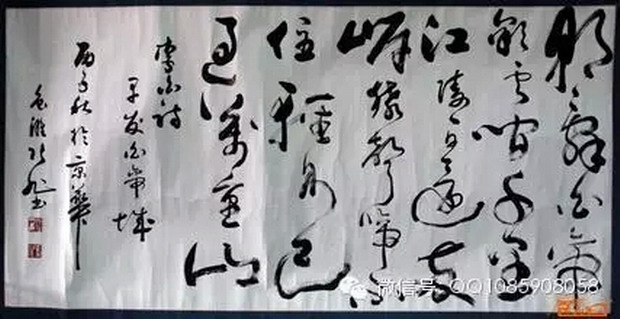 朝辞白帝
彩云间千里
江陵一日还两
岸猿声啼不
住轻舟已
过万重山
李白诗
早发白帝城
丙子秋於京华
书
微信号: QQ1085908058